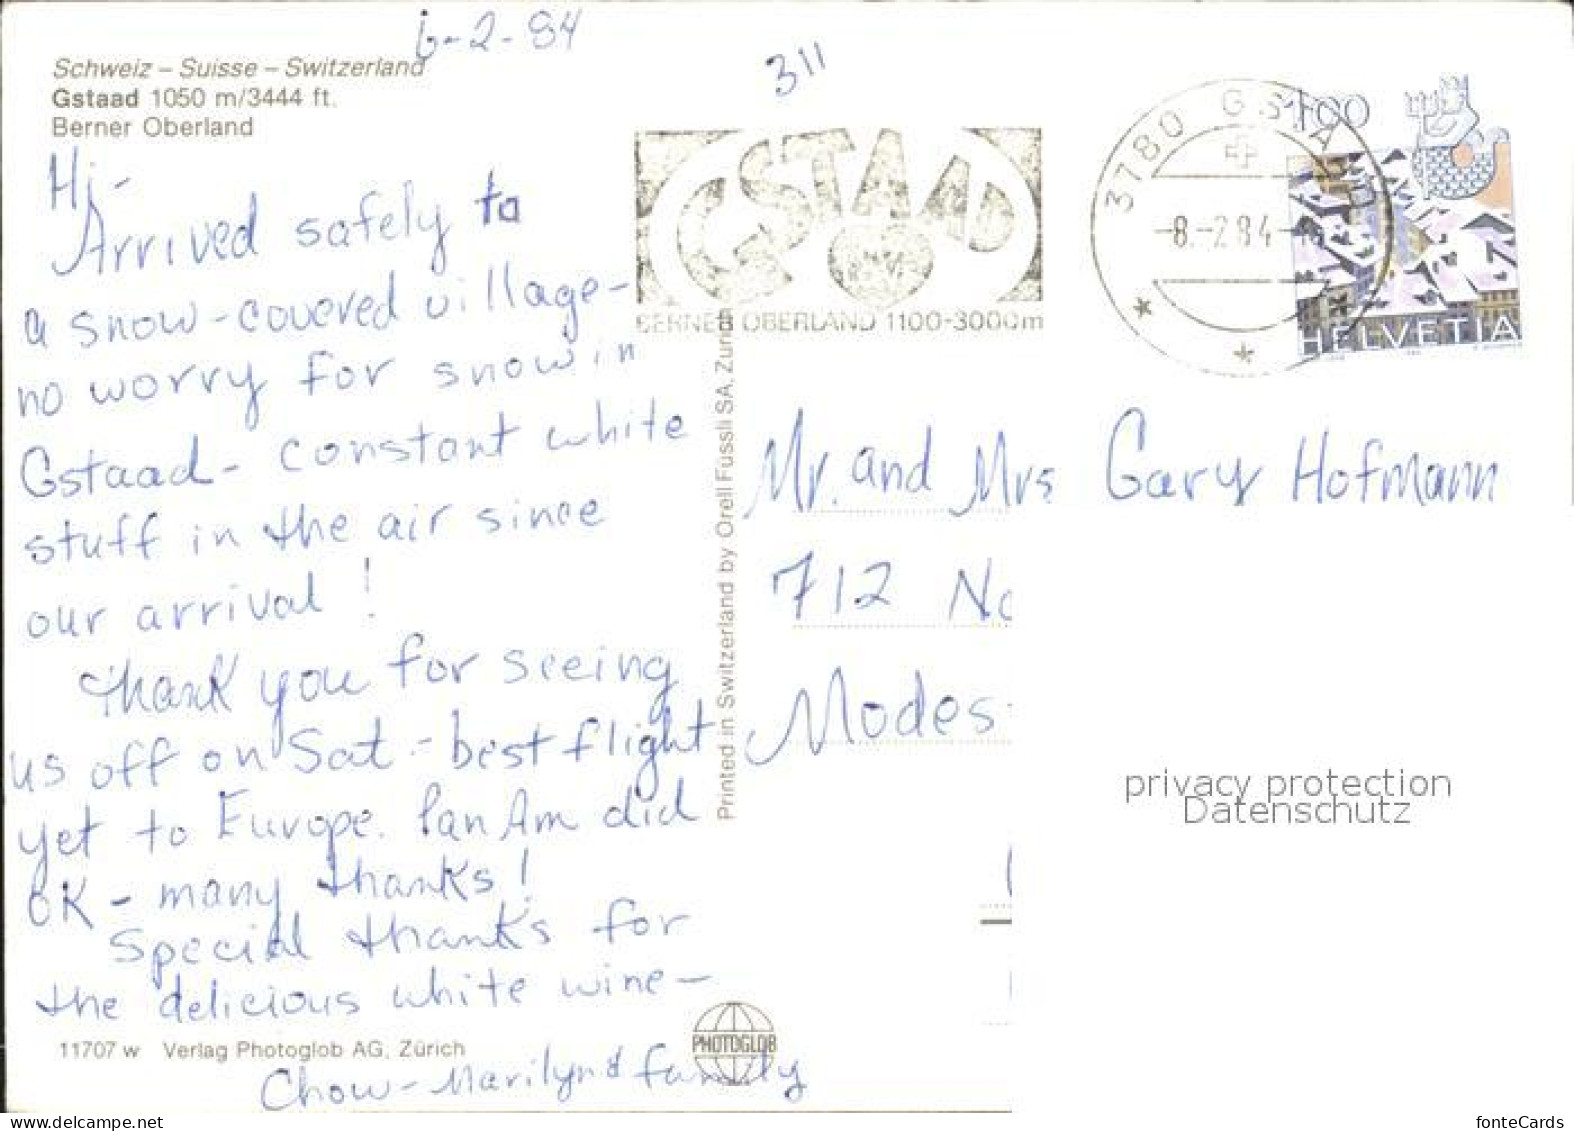 6-2-84
311
Schweiz – Suisse – Switzerland
Gstaad 1050 m/3444 ft.
Berner Oberland
Hi-
Arrived safely to
a snow-covered village-
no worry for snow in
Gstaad- constant white
stuff in the air since
our arrival!
Thank you for seeing
us off on Sat.- best flight
yet to Europe. Pan Am did
OK - many thanks!
Special thanks for
the delicious white wine-
Chow- Marilyn & family
11707 w Verlag Photoglob AG, Zürich
PHOTOGLOB
Printed in Switzerland by Orell Füssli SA, Zürich
GSTAAD
BERNER OBERLAND 1100-3000m
3780 GSTAAD
-8.-2.84-
1.00
HELVETIA
Mr. and Mrs Gary Hofmann
712 No
Modes
privacy protection
Datenschutz
www.delcampe.net
fonteCards